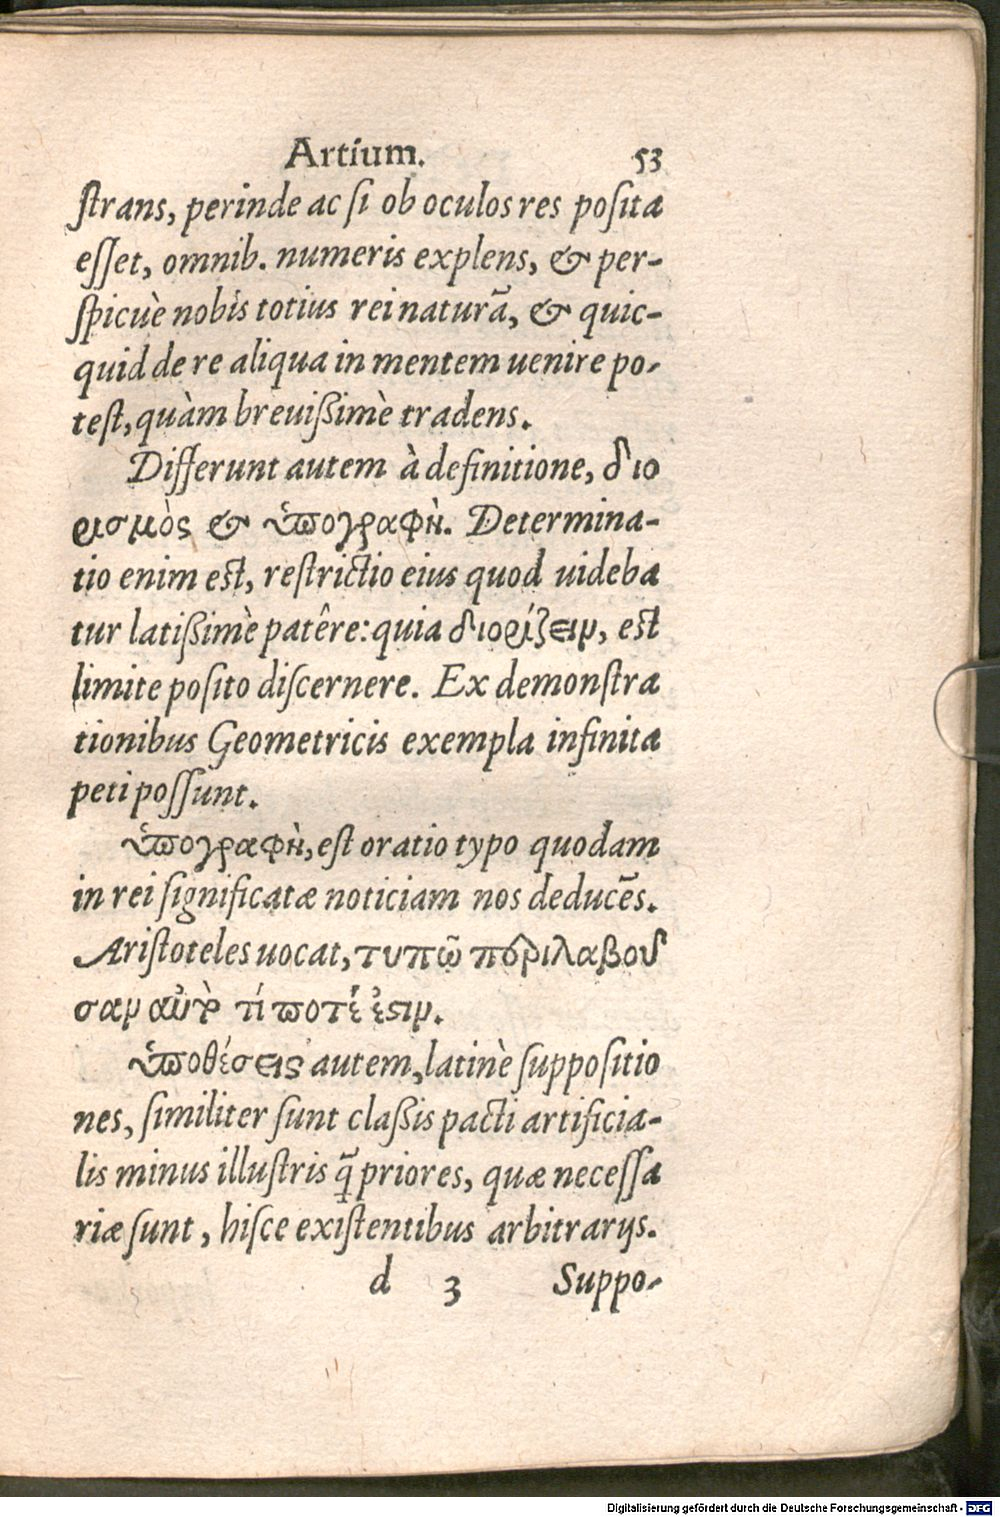 Artium. 53
ſtrans, perinde ac ſi ob oculos res poſita
eſſet, omnib. numeris explens, & per-
ſpicuè nobis totius rei naturā, & quic-
quid de re aliqua in mentem uenire po-
teſt, quàm breuißimè tradens.
Differunt autem à definitione, διο
ρισμὸς & ὑπογραφὴ. Determina-
tio enim eſt, reſtrictio eius quod uideba
tur latißimè patêre: quia διορίζειν, eſt
limite poſito diſcernere. Ex demonſtra
tionibus Geometricis exempla infinita
peti poſſunt.
ὑπογραφὴ, eſt oratio typo quodam
in rei ſignificatæ noticiam nos deducēs.
Ariſtoteles uocat, τυπῶ περιλαβοῦ
σαν τί ποτέ ἐστιν.
ὑποθέσεις autem, latinè ſuppoſitio
nes, ſimiliter ſunt claßis pacti artificia-
lis minus illuſtris q̃ priores, quæ neceſſa
riæ ſunt, hiſce exiſtentibus arbitrarijs.
d 3 Suppo-
Digitalisierung gefördert durch die Deutsche Forschungsgemeinschaft - DFG